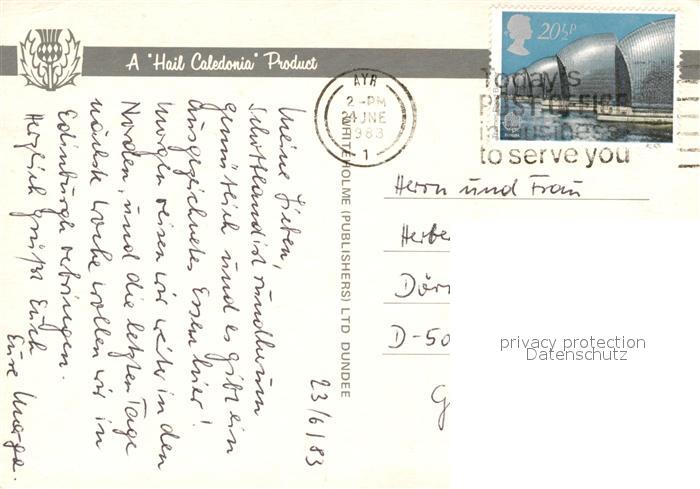 A "Hail Caledonia" Product
20½p
AYR
2-PM
24 JNE
1983
1
Today's
POST OFFICE
in business
to serve you
WHITEHOLME (PUBLISHERS) LTD DUNDEE
23/6/83
Meine Lieben,
Schottland ist rundherum
gemütlich und es gibt ein
ausgezeichnetes Essen hier!
Morgen reisen wir weiter in den
Norden, und die letzten Tage
nächste Woche wollen wir in
Edinburgh verbringen.
Herzlich grüßt Euch
Eure Marga.
Herrn und Frau
Herbe
Dürr
D-50
G
privacy protection
Datenschutz